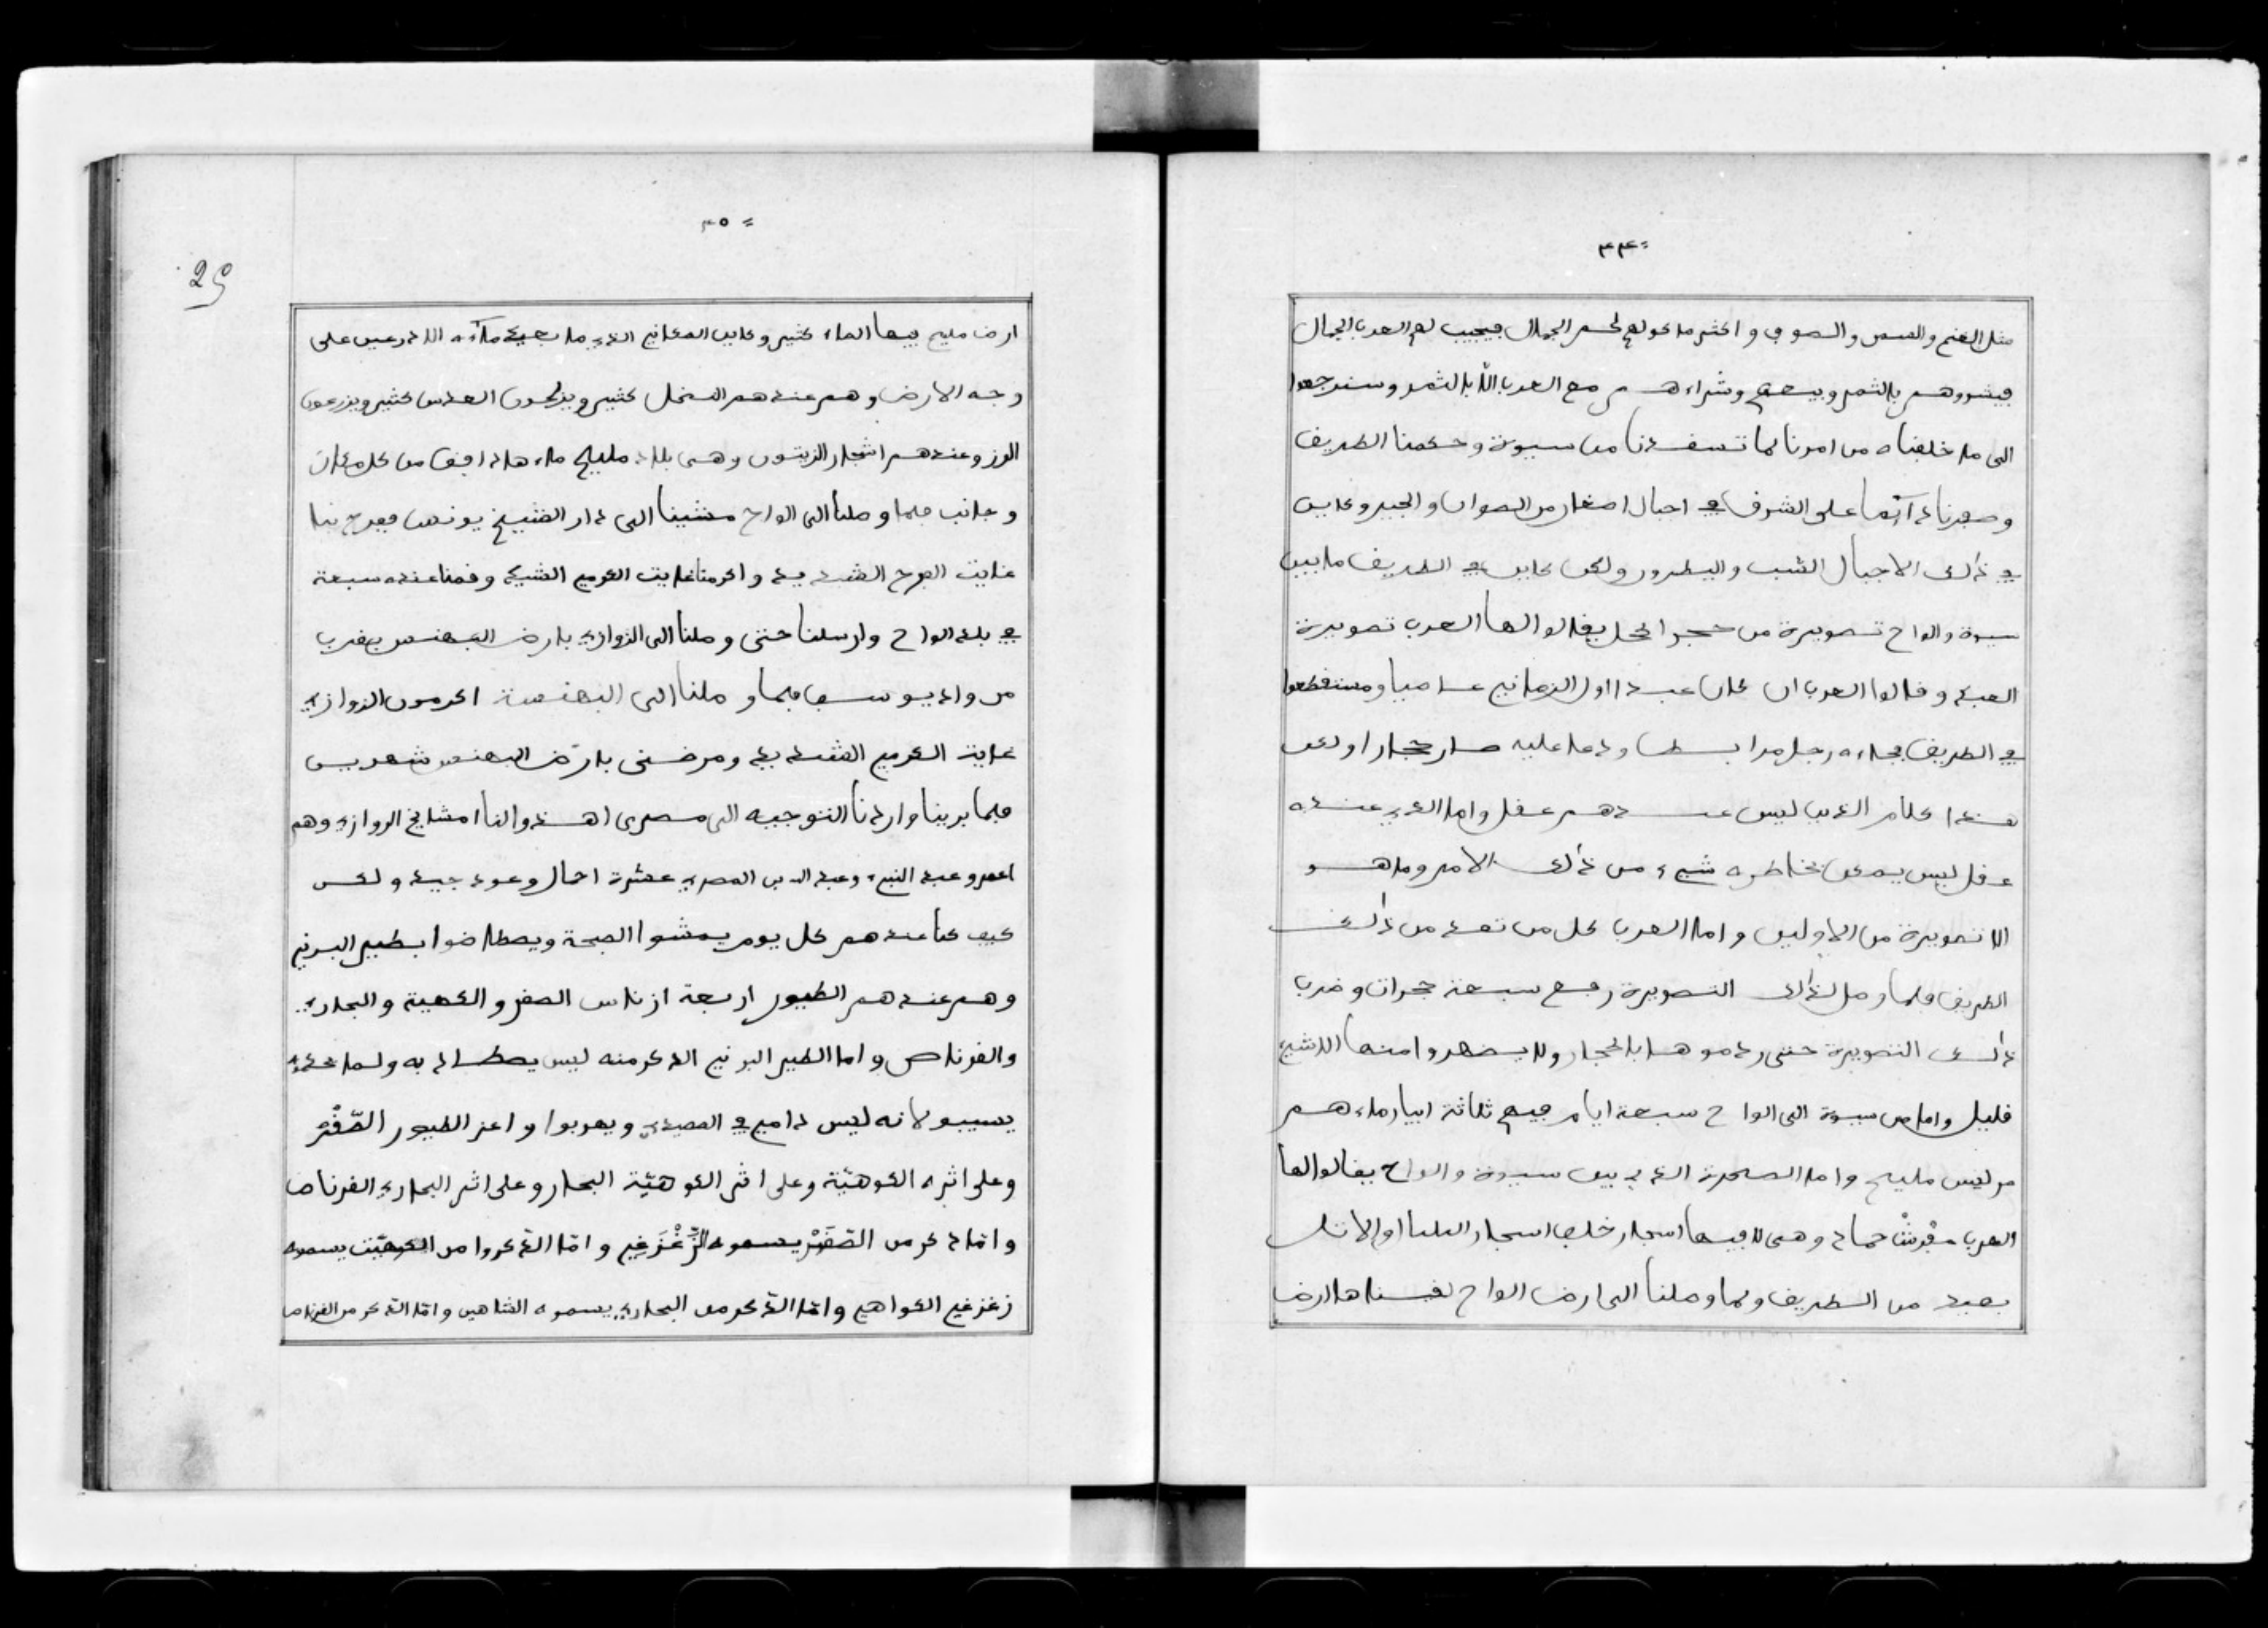 ٤٤=
مثل الغنم والسمن والصوف واكثر ماكولهم لحم الجمال فيجيب لهم العرب الجمال
فيشروهم بالثمر وبيعهم وشراءهم مع العرب الا بالثمر وسنرجعوا
الى ما خلفناه من امرنا لما تسفدنا من سيوة وحكمنا الطريف
وصفرنا دآئما على الشرف في اجبال اصغار من الصوان والجير وكاين
في ذالك الاجبال الشب واليطرور ولكن كاين في الطريف ما بين
سيوة والواح تصويرة من حجر الحل يفالوا لها العرب تصويرة
العبد وفالوا العرب ان كان عبد اول الزماني عاصيا ومستفطعوا
في الطريف فجاءه رجل مرابط ودعا عليه صار حجار اولكن
هذا كلام الذيب ليس عندهم عفل واما الذي عنده
عفل ليس يدعى بخاطره شيء من ذالك الامر وما هو
الا تصويرة من الاولين واما العرب كل من تعد من ذالك
الطريف فلما وصل لذالك التصويرة رفع سبعة حجرات وضرب
ذالك التصويرة حتى ردموها بالحجار ولا يضهروا منها الا شيء
فليل واما من سيوة الى الواح سبعة ايام فيهم ثلاثة ابيار ماءهم
ليس مليح واما الصحرة الذي بين سيوة والواح يفالوا لها
العرب بفرش حماد وهى لا فيها اسجار خلف اسجار البلبا اوالاثل
بعيد من الطريف ولما وصلنا الى ارض الواح لفيناها ارض
٤٥=
25
ارض مليح فيها الماء كثير وكاين المكاني الذي ما يعيد ماءه الا ذرعين على
وجه الارض وهم عندهم النخل كثير ويزرعون العدس كثير ويزرعون
الرز وعندهم اشجار الزيتون وهى بلاد مليح ماءها دافف من كل مكان
وجانب فلما وصلنا الى الواح مشينا الى دار الشيخ يونس ففرح بنا
غايت الفرح الشديد واكرمنا غايت الكريم الشيد وفمنا عنده سبعة
في بلد الواح وارسلنا حتى وصلنا الى الزوازي بارض البهنس بغرب
من واد يوسف فلما وصلنا الى البهنسة اكرمون الزوازي
غايت الكريم الشديد ومرضنى بارض البهنس شهرين
فلما برينا وارادنا التوجيه الى مصرى اهذوالنا امشايخ الزوازي وهم
اعمر وعبد النبي وعبد الدين المصري عشرة احمال وعود جيد ولكن
كيف كنا عندهم كل يوم يمشوا الصحة ويصطاضوا بطير البرني
وهم عندهم الطيور اربعة ازناس الصفر والكهية والبحاري
والفرناص واما الطير البرني الذكر منه ليس يصطاد به ولما حكدي
يسيبو لانه ليس دامي في الصيدي ويهربوا واعز الطيور الصّفْرْ
وعلى اثره الكوهيّة وعلى اثر الكوهيّة البحار وعلى اثر البحاري الفرناص
وامّا ذكر من الصّفْرْ يسموه الزّغْزَغِي وامّا الذكروا من الكوهيّت يسموه
زغزغي الكواهي وامّا الذكر من البحاري يسموه الشاهين وامّا الذكر من الفرناص